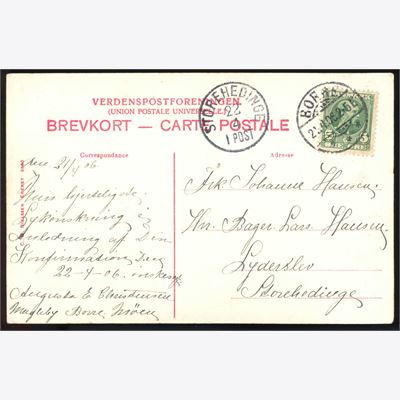 VERDENSPOSTFORENINGEN.
(UNION POSTALE UNIVERSELLE.)
BREVKORT — CARTE POSTALE
STOREHEDINGE
22
4
1 POST
BORRE
5 5
ØRE
Correspondance
Adresse
den 21/4 06
Min hjerteligste
Lykønskning i
Anledning af Din
Konfirmation Dag
22-4-06. ønskes af
Augusta E Christensen
Magleby Borre Møen
Frk Johanne Hansen
Hr. Bager Lars Hansen
Lyderslev
Storehedinge